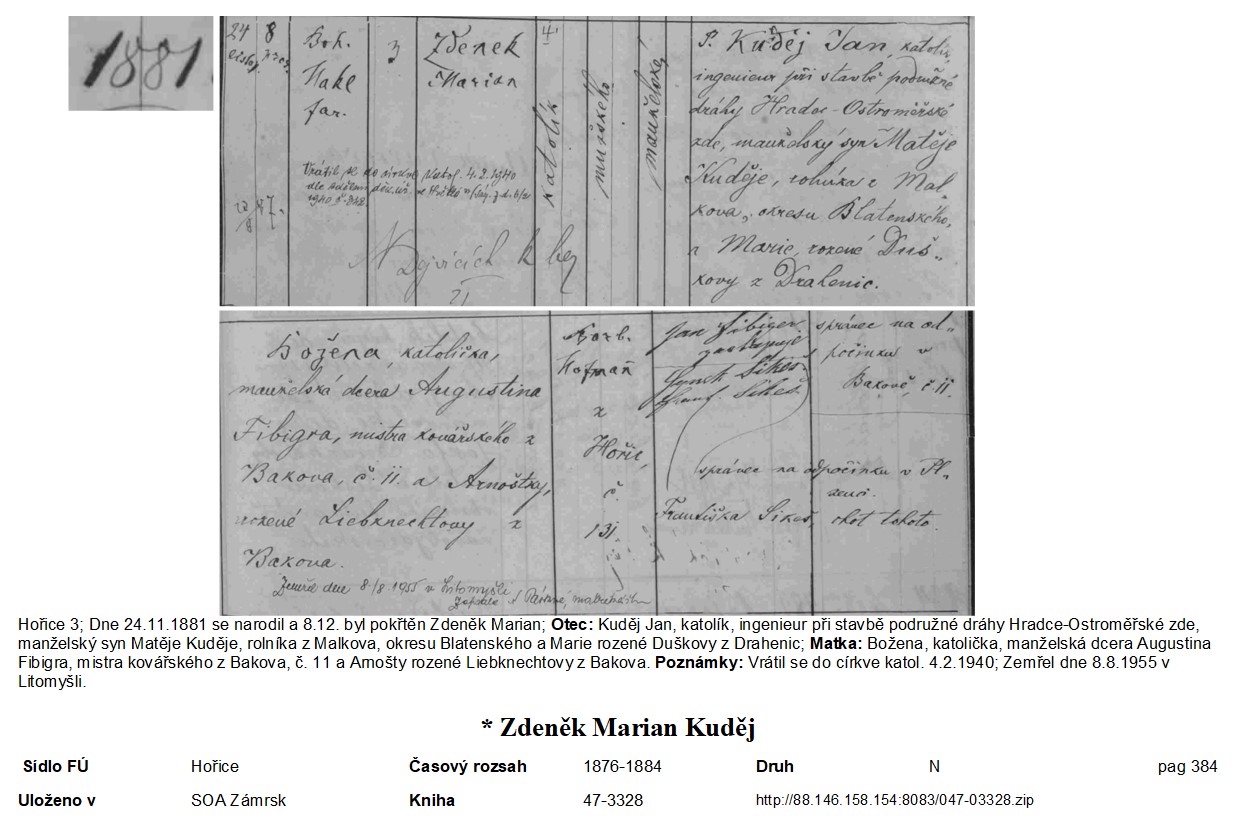 1881
24 8
listop. pros.
Boh.
Hake
far.
3
Zdenek
Marian
katolík
mužského
manželské
P. Kuděj Jan, katolík,
ingenieur při stavbě podružné
dráhy Hradec-Ostroměřské
zde, manželský syn Matěje
Kuděje, rolníka z Mal-
kova, okresu Blatenského,
a Marie, rozené Duš-
kovy z Drahenic.
Vrátil se do církve katol. 4.2.1940
N Dejvicích
Božena, katolička,
manželská dcera Augustina
Fibigra, mistra kovářského z
Bakova, č. 11. a Arnoštky,
rozené Liebknechtovy z
Bakova.
Zemřel dne 8/8 1955 v Litomyšli
Barb.
Hofmañ
z
Hořic,
č.
131.
Jan Fibiger,
zastupuje
Hynek Sikeš
správce na od-
počinku v
Bakově, č. 11.
správce na odpočinku v Pl-
zeuci.
Františka Sikeš, chot tohoto.
Hořice 3; Dne 24.11.1881 se narodil a 8.12. byl pokřtěn Zdeněk Marian; Otec: Kuděj Jan, katolík, ingenieur při stavbě podružné dráhy Hradce-Ostroměřské zde,
manželský syn Matěje Kuděje, rolníka z Malkova, okresu Blatenského a Marie rozené Duškovy z Drahenic; Matka: Božena, katolička, manželská dcera Augustina
Fibigra, mistra kovářského z Bakova, č. 11 a Arnošty rozené Liebknechtovy z Bakova. Poznámky: Vrátil se do církve katol. 4.2.1940; Zemřel dne 8.8.1955 v
Litomyšli.
* Zdeněk Marian Kuděj
Sídlo FÚ Hořice Časový rozsah 1876-1884 Druh N pag 384
Uloženo v SOA Zámrsk Kniha 47-3328 http://88.146.158.154:8083/047-03328.zip